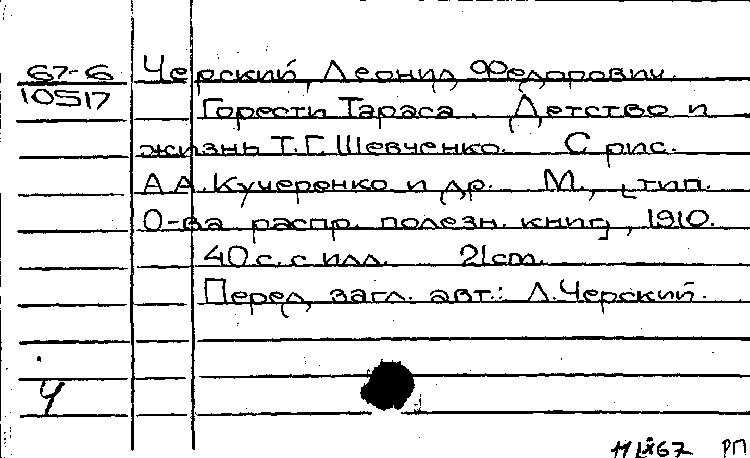 67-6
10517
Черский, Леонид Федорович.
Горести Тараса. Детство и
жизнь Т.Г. Шевченко. С рис.
А.А. Кучеренко и др. М., [тип.
О-ва распр. полезн. книг], 1910.
40 с. с илл. 21 cm.
Перед загл. авт.: Л. Черский.
Ч
11 IX 67 РП